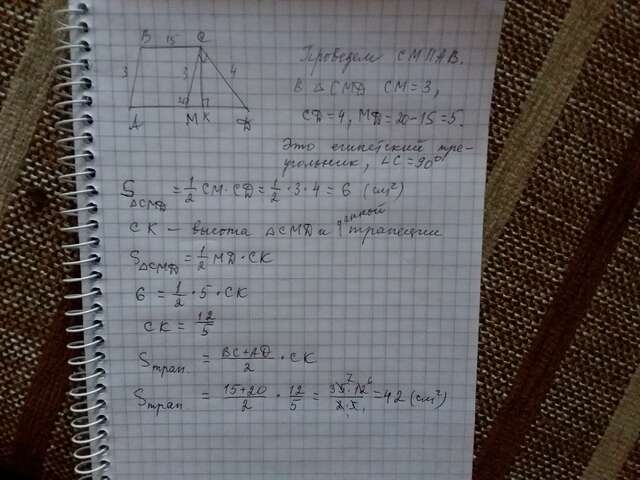 B 15 C
3 3 4
20
A M K D
Проведем CM ∥ AB.
В △CMD CM = 3,
CD = 4, MD = 20 - 15 = 5.
Это египетский тре-
угольник, ∠C = 90°
S△CMD = 1/2 CM · CD = 1/2 · 3 · 4 = 6 (см²)
CK – высота △CMD и данной трапеции
S△CMD = 1/2 MD · CK
6 = 1/2 · 5 · CK
CK = 12/5
Sтрап. = (BC + AD)/2 · CK
Sтрап = (15 + 20)/2 · 12/5 = (35 7 · 12 6)/(2 · 5) = 42 (см²)